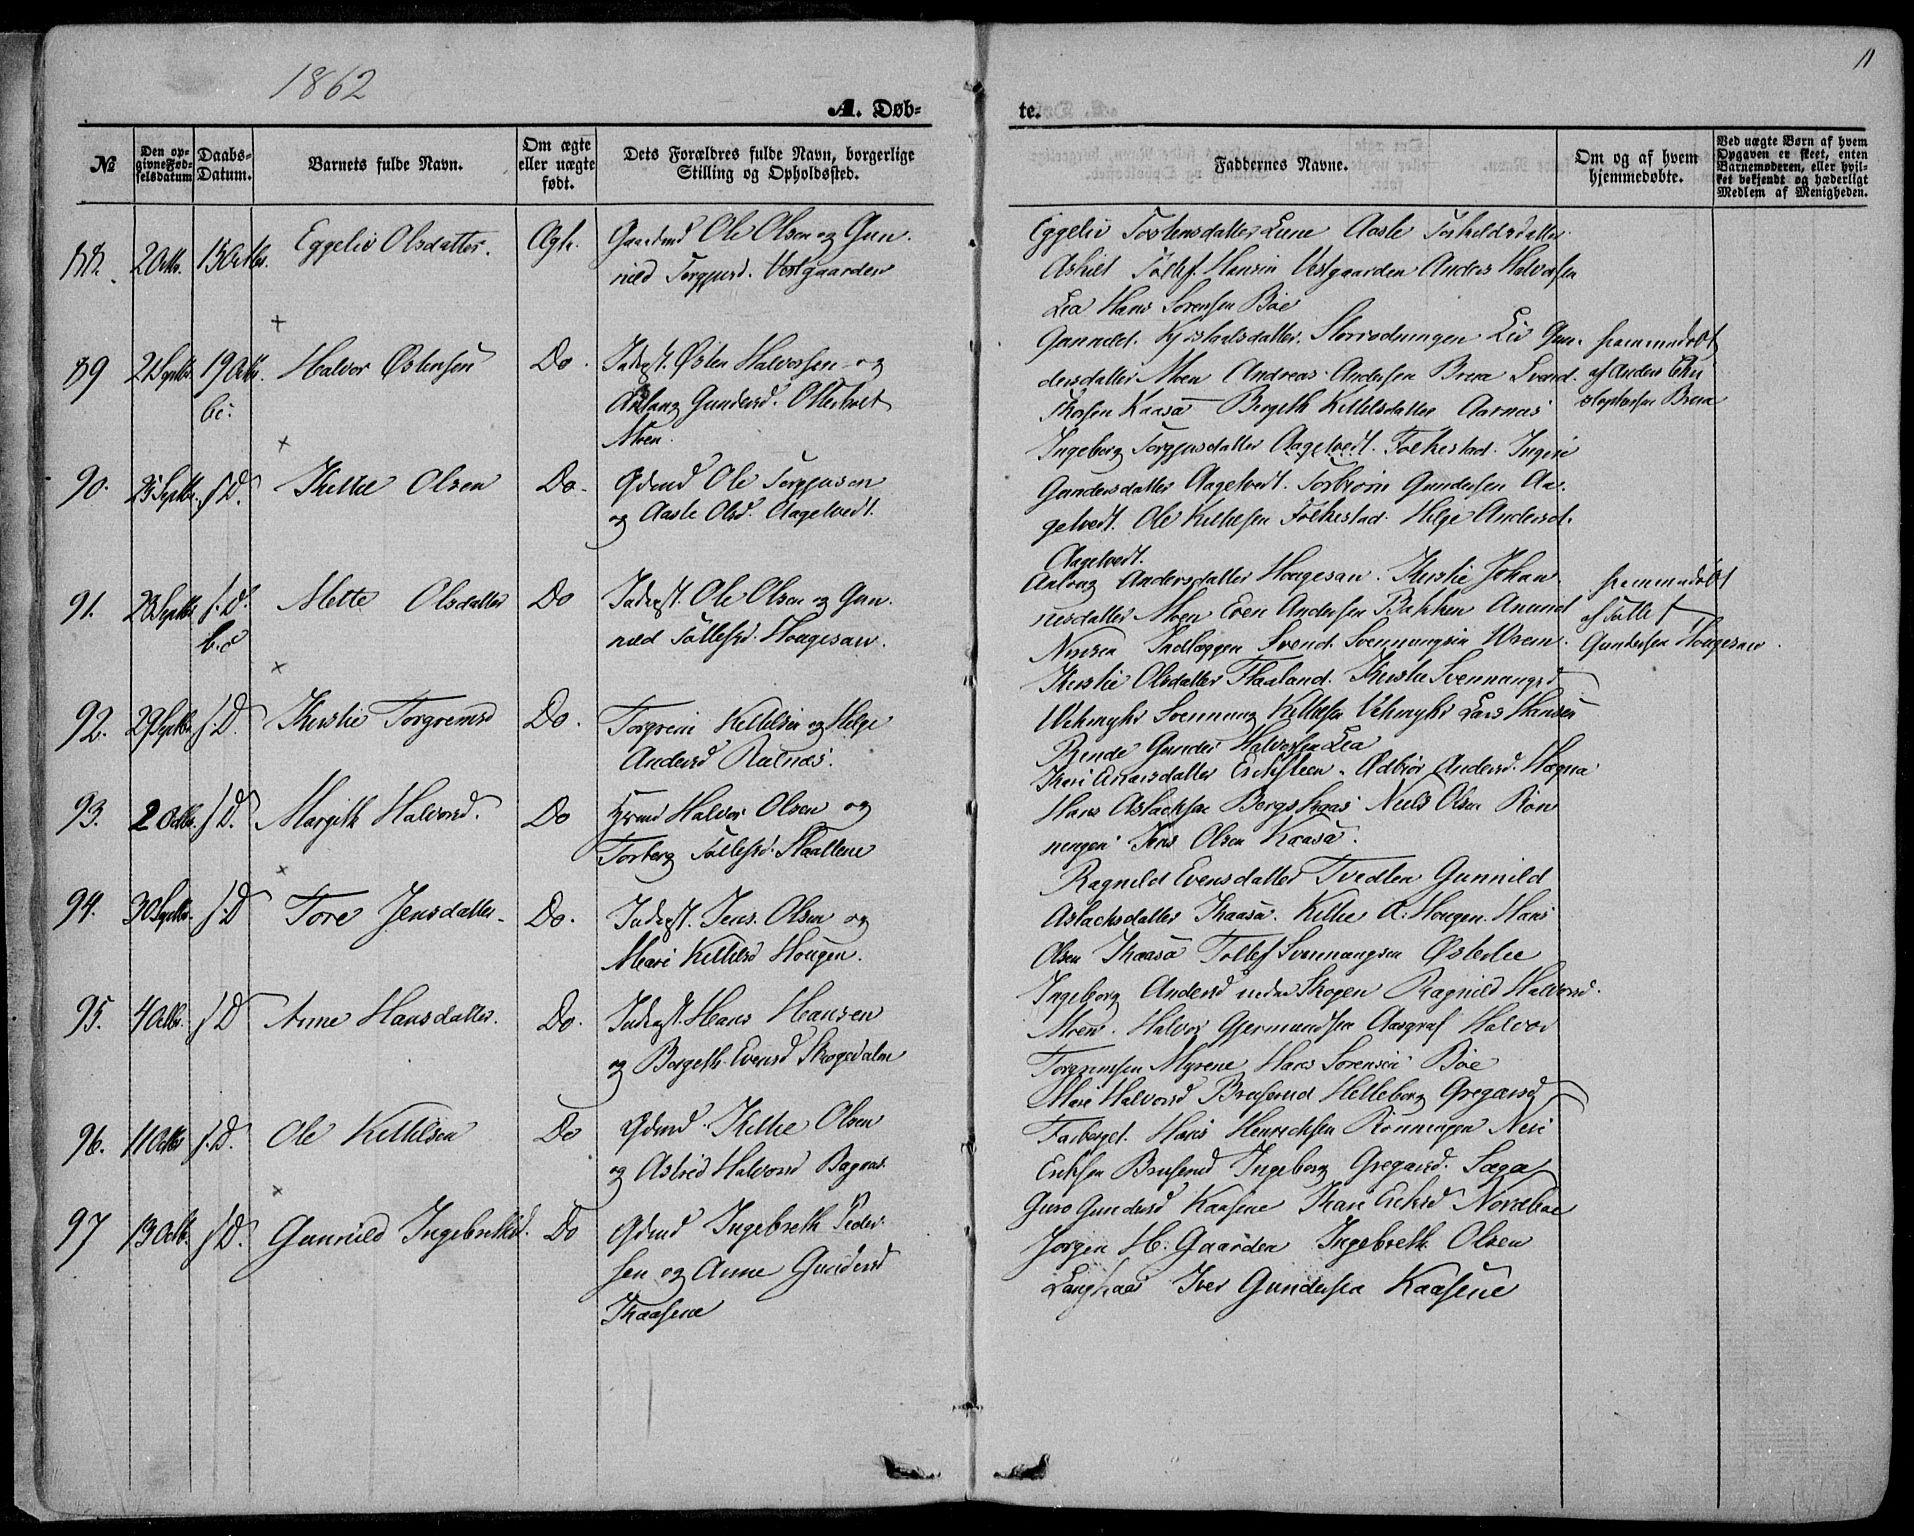 1862
11
A. Døb-
te.
No
Den op-
givne Fød-
selsdatum
Daabs-
Datum.
Barnets fulde Navn.
Om ægte
eller uægte
født.
Dets Forældres fulde Navn, borgerlige
Stilling og Opholdssted.
Faddernes Navne.
Om og af hvem
hjemmedøbte.
Ved uægte Børn af hvem
Opgaven er skeet, enten
Barnemoderen, eller hvil-
ket bekjendt og hæderligt
Medlem af Menigheden.
88. 2 Octb. Eggeliv Olsdatter. Ægte. Ole Olsen og Gun-
nild Torgjusd. Vestgaarden
Eggeliv Torstensdatter Lune Aasle Torkildsdatter
Tollef Hansen Vestgaarden Anders Halvorsen
Lea Hans Sørensen Bøe
89 21 Septbr. 19 Octb. Halvor Østensen Do. Inderst. Østen Halvorsen og
Aslaug Gundersd. Ottertvet
Moen.
Storrodningen Liv Gun-
dersdatter Moen Andreas Andersen Brena Svend
Kaasa Bergith Kittelsdatter Aarnæs
hjemmedøbt
af Anders Chri
stophersen Brena
90. 25 Septbr. s. D. Kittel Olsen Do. Gdmd Ole Torgjusen
og Aasle Olsd. Aagetvedt.
Ingeborg Torgjusdatter Aagetvedt. Folkestad. Ingrie
Gundersdatter Aagetvedt. Torbiørn Gundersen Aa-
getvedt. Ole Kittilsen Folkestad. Helge Andersd.
Aagetvedt.
91. 28 Septbr. s. D. Mette Olsdatter Do Inderst. Ole Olsen og Gun-
nild Tollefsd. Hougesaw.
Aslaug Andersdatter Hougesaw. Kirstie Johan-
nesdatter Moen Even Andersen Bakken Anund
Svend Svennungsen Wrem.
hjemmedøbt
af Tollef
Gundersen Hougesaw.
92. 29 Septbr. s. D. Kirstie Torgrimsd Do. Torgrim Kittilsen og Helge
Andersd Rutnæs.
Kirstie Olsdatter Haaland. Kirstie Svennungsd
Vehmyhr Svennung Kittilsen Vehmyhr Lars Hansen
Rende Gunder Halvorsen Lea
93. 2 Octb. s. D. Margith Halvorsd. Do Halvor Olsen og
Torberg Tollefsd.
Kari Ericksteen. Andersd. Hægna
Hans Aslacksen Bergshaas Niels Olsen Røn
ningen Jens Olsen Kaasa.
94. 30 Septbr. s. D Tore Jensdatter. Do. Inderst. Jens Olsen og
Mari Kittilsd Hougen.
Ragnild Evensdatter Tvedten Gunnild
Aslacksdatter Kaasa. Kittil A. Hougen. Hans
Olsen Kaasa Tollef Svennungsen Østerlie
95. 4 Octb. s D Anne Hansdatter. Do. Inderst. Hans Hansen
og Borgeth Evensd Skogsdalen
Ingeborg Andersd neder Skogen Ragnild Halvorsd.
Moen. Halvor Gjermundsen Aasgraf Halvor
Torgrimsen Myrene Hans Sørensen Bøe
96. 11 Octb. s. D. Ole Kittilsen Do Gdmd. Kittil Olsen
og Astrid Halvorsd Bagaas.
Mari Halvorsd Bruserud Helleborg Gregarsd
Tarberget. Hans Henricksen Rønningen Neri
Ericksen Bruserud Ingeborg Gregarsd. Saga
97 13 Octb. s. D. Gunnild Ingebrethsd. Do Gdmd Ingebreth Peder-
sen og Anne Gundersd
Kaasene
Guro Gundersd Kaasene Kari Ericksd Nordbøe
Jørgen H. Gaarden Ingebreth Olsen
Langhaas Iver Gundersen Kaasene